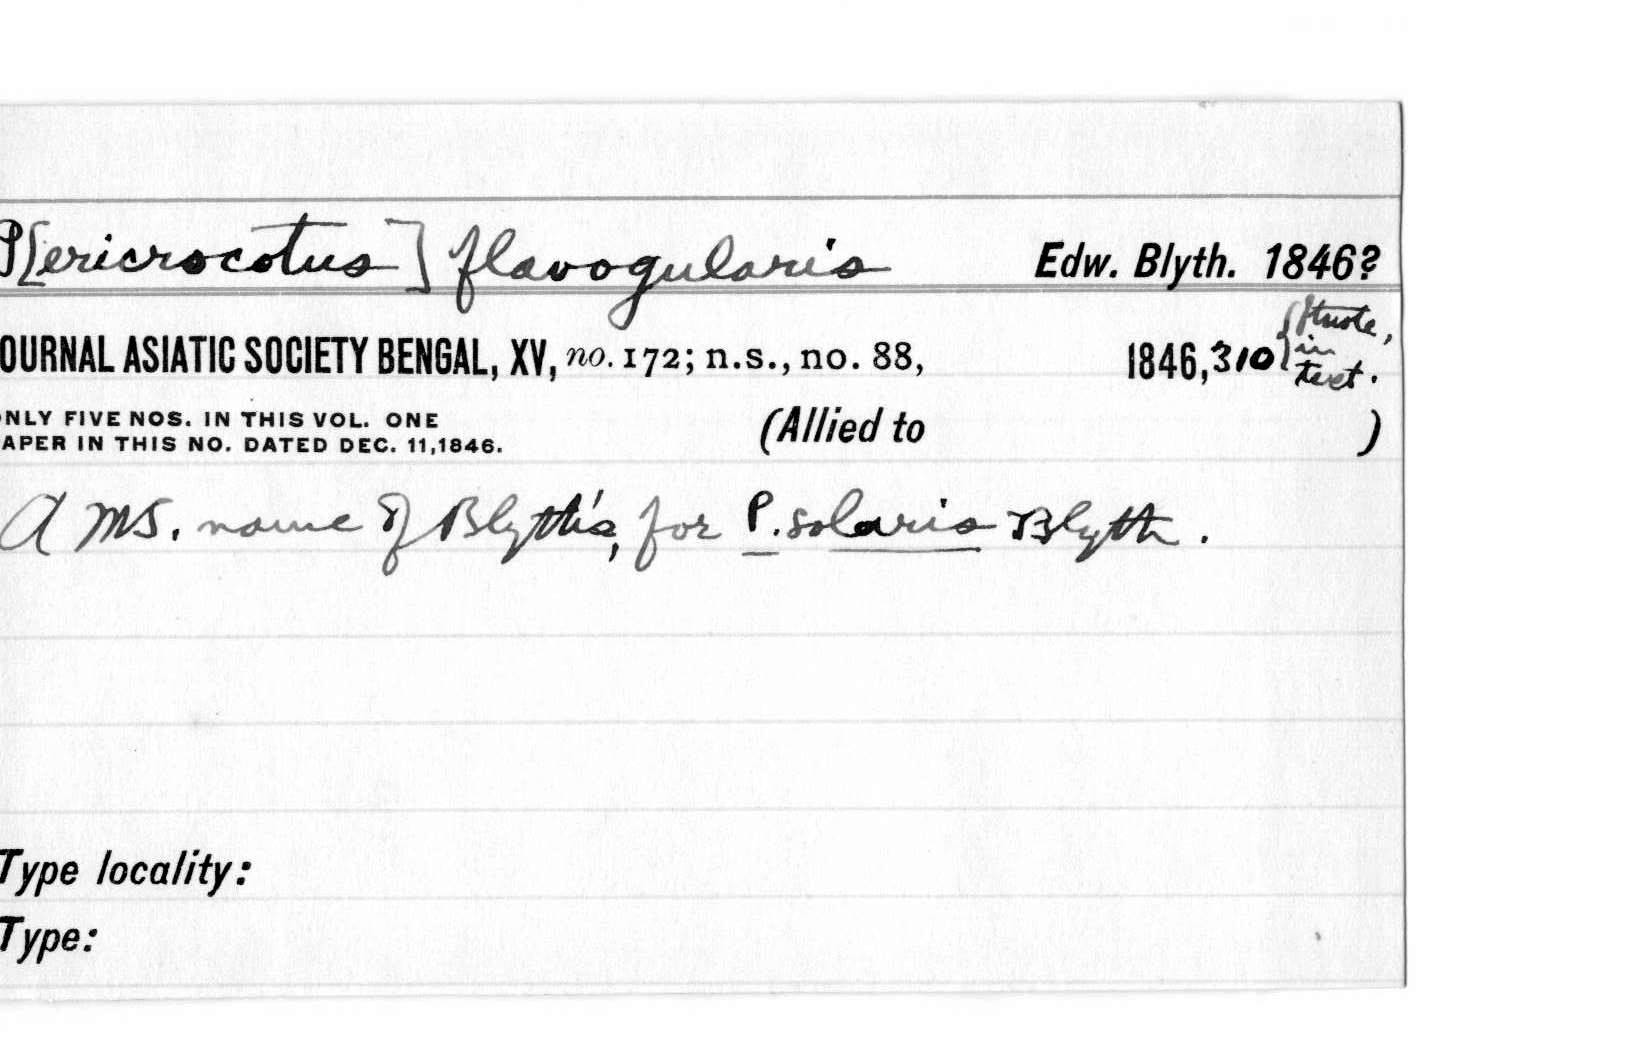 P[ericrocotus] flavogularis Edw. Blyth. 1846?
OURNAL ASIATIC SOCIETY BENGAL, XV, no. 172; n.s., no. 88, 1846, 310 { ftnote, in text.
NLY FIVE NOS. IN THIS VOL. ONE
APER IN THIS NO. DATED DEC. 11, 1846.
(Allied to )
A MS. name of Blyth's, for P. solaris Blyth.
Type locality:
Type: